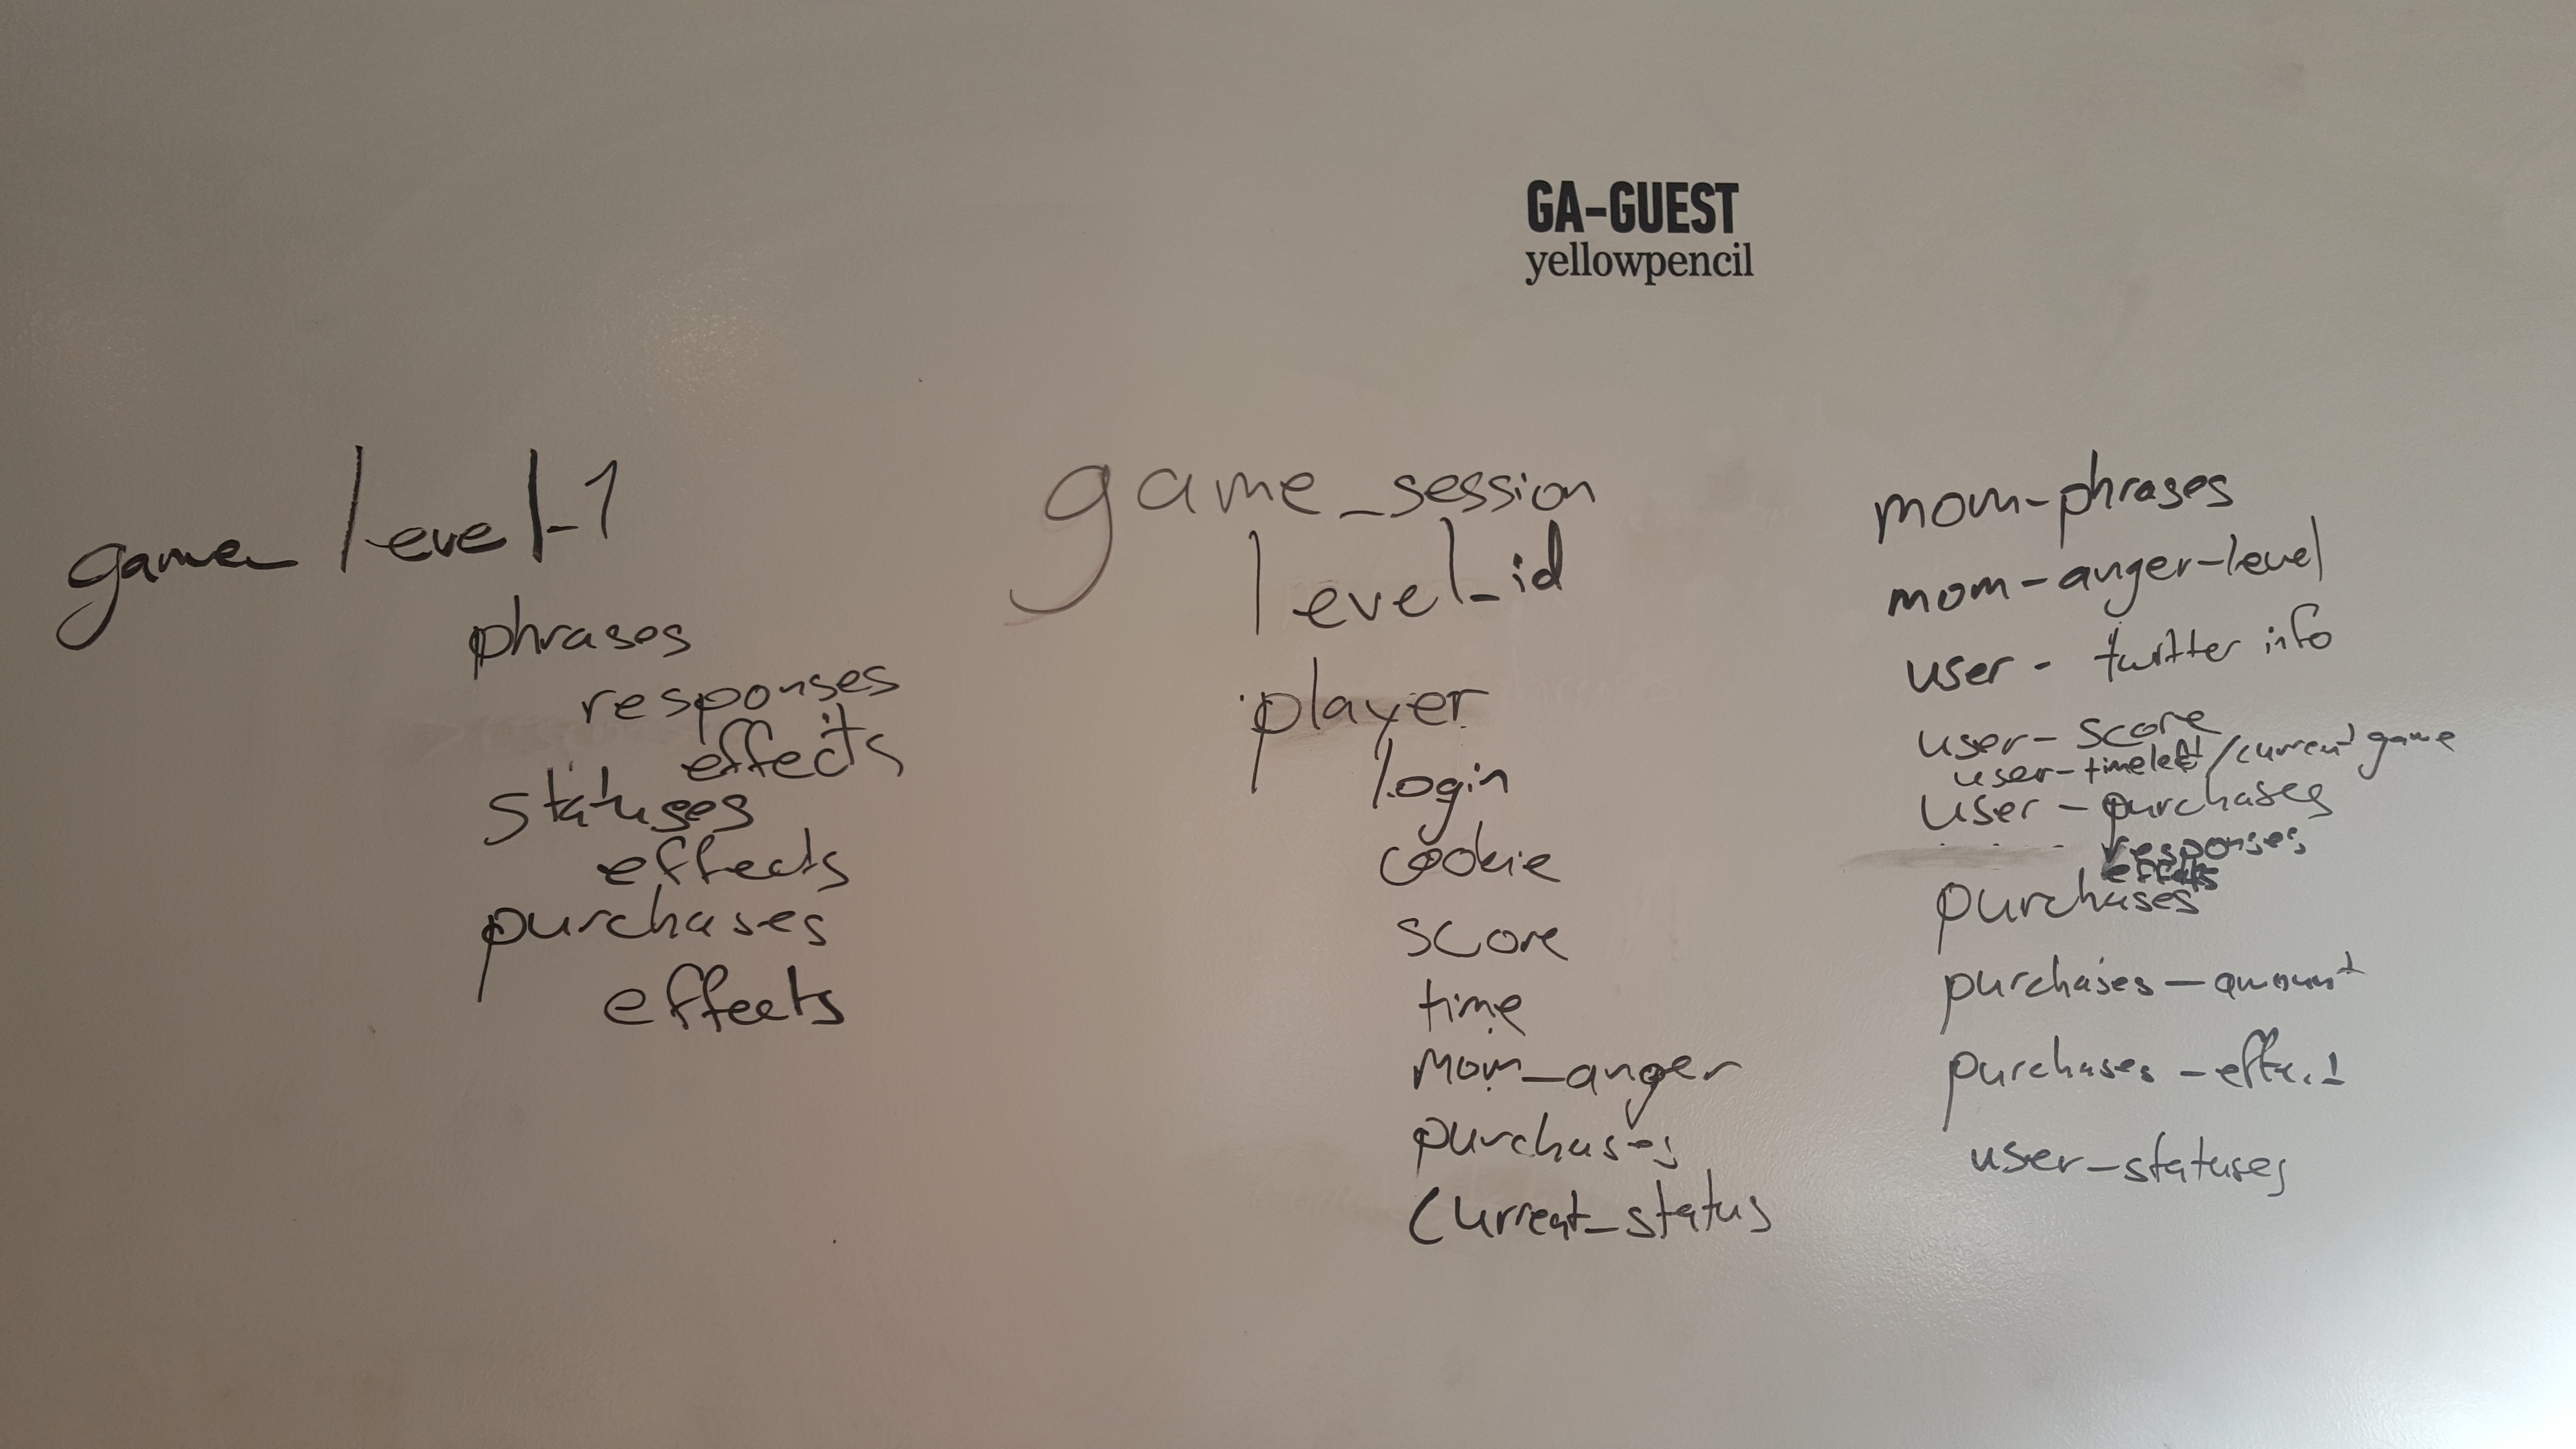 GA-GUEST
yellowpencil
game_level_1
phrases
responses
effects
statuses
effects
purchases
effects
game_session
level_id
player
login
cookie
score
time
mom_anger
purchases
current_status
mom-phrases
mom-anger-level
user - twitter info
user-score
user-timeleft/current game
user-purchases
responses
effects
purchases
purchases-amount
purchases-effect
user-statuses